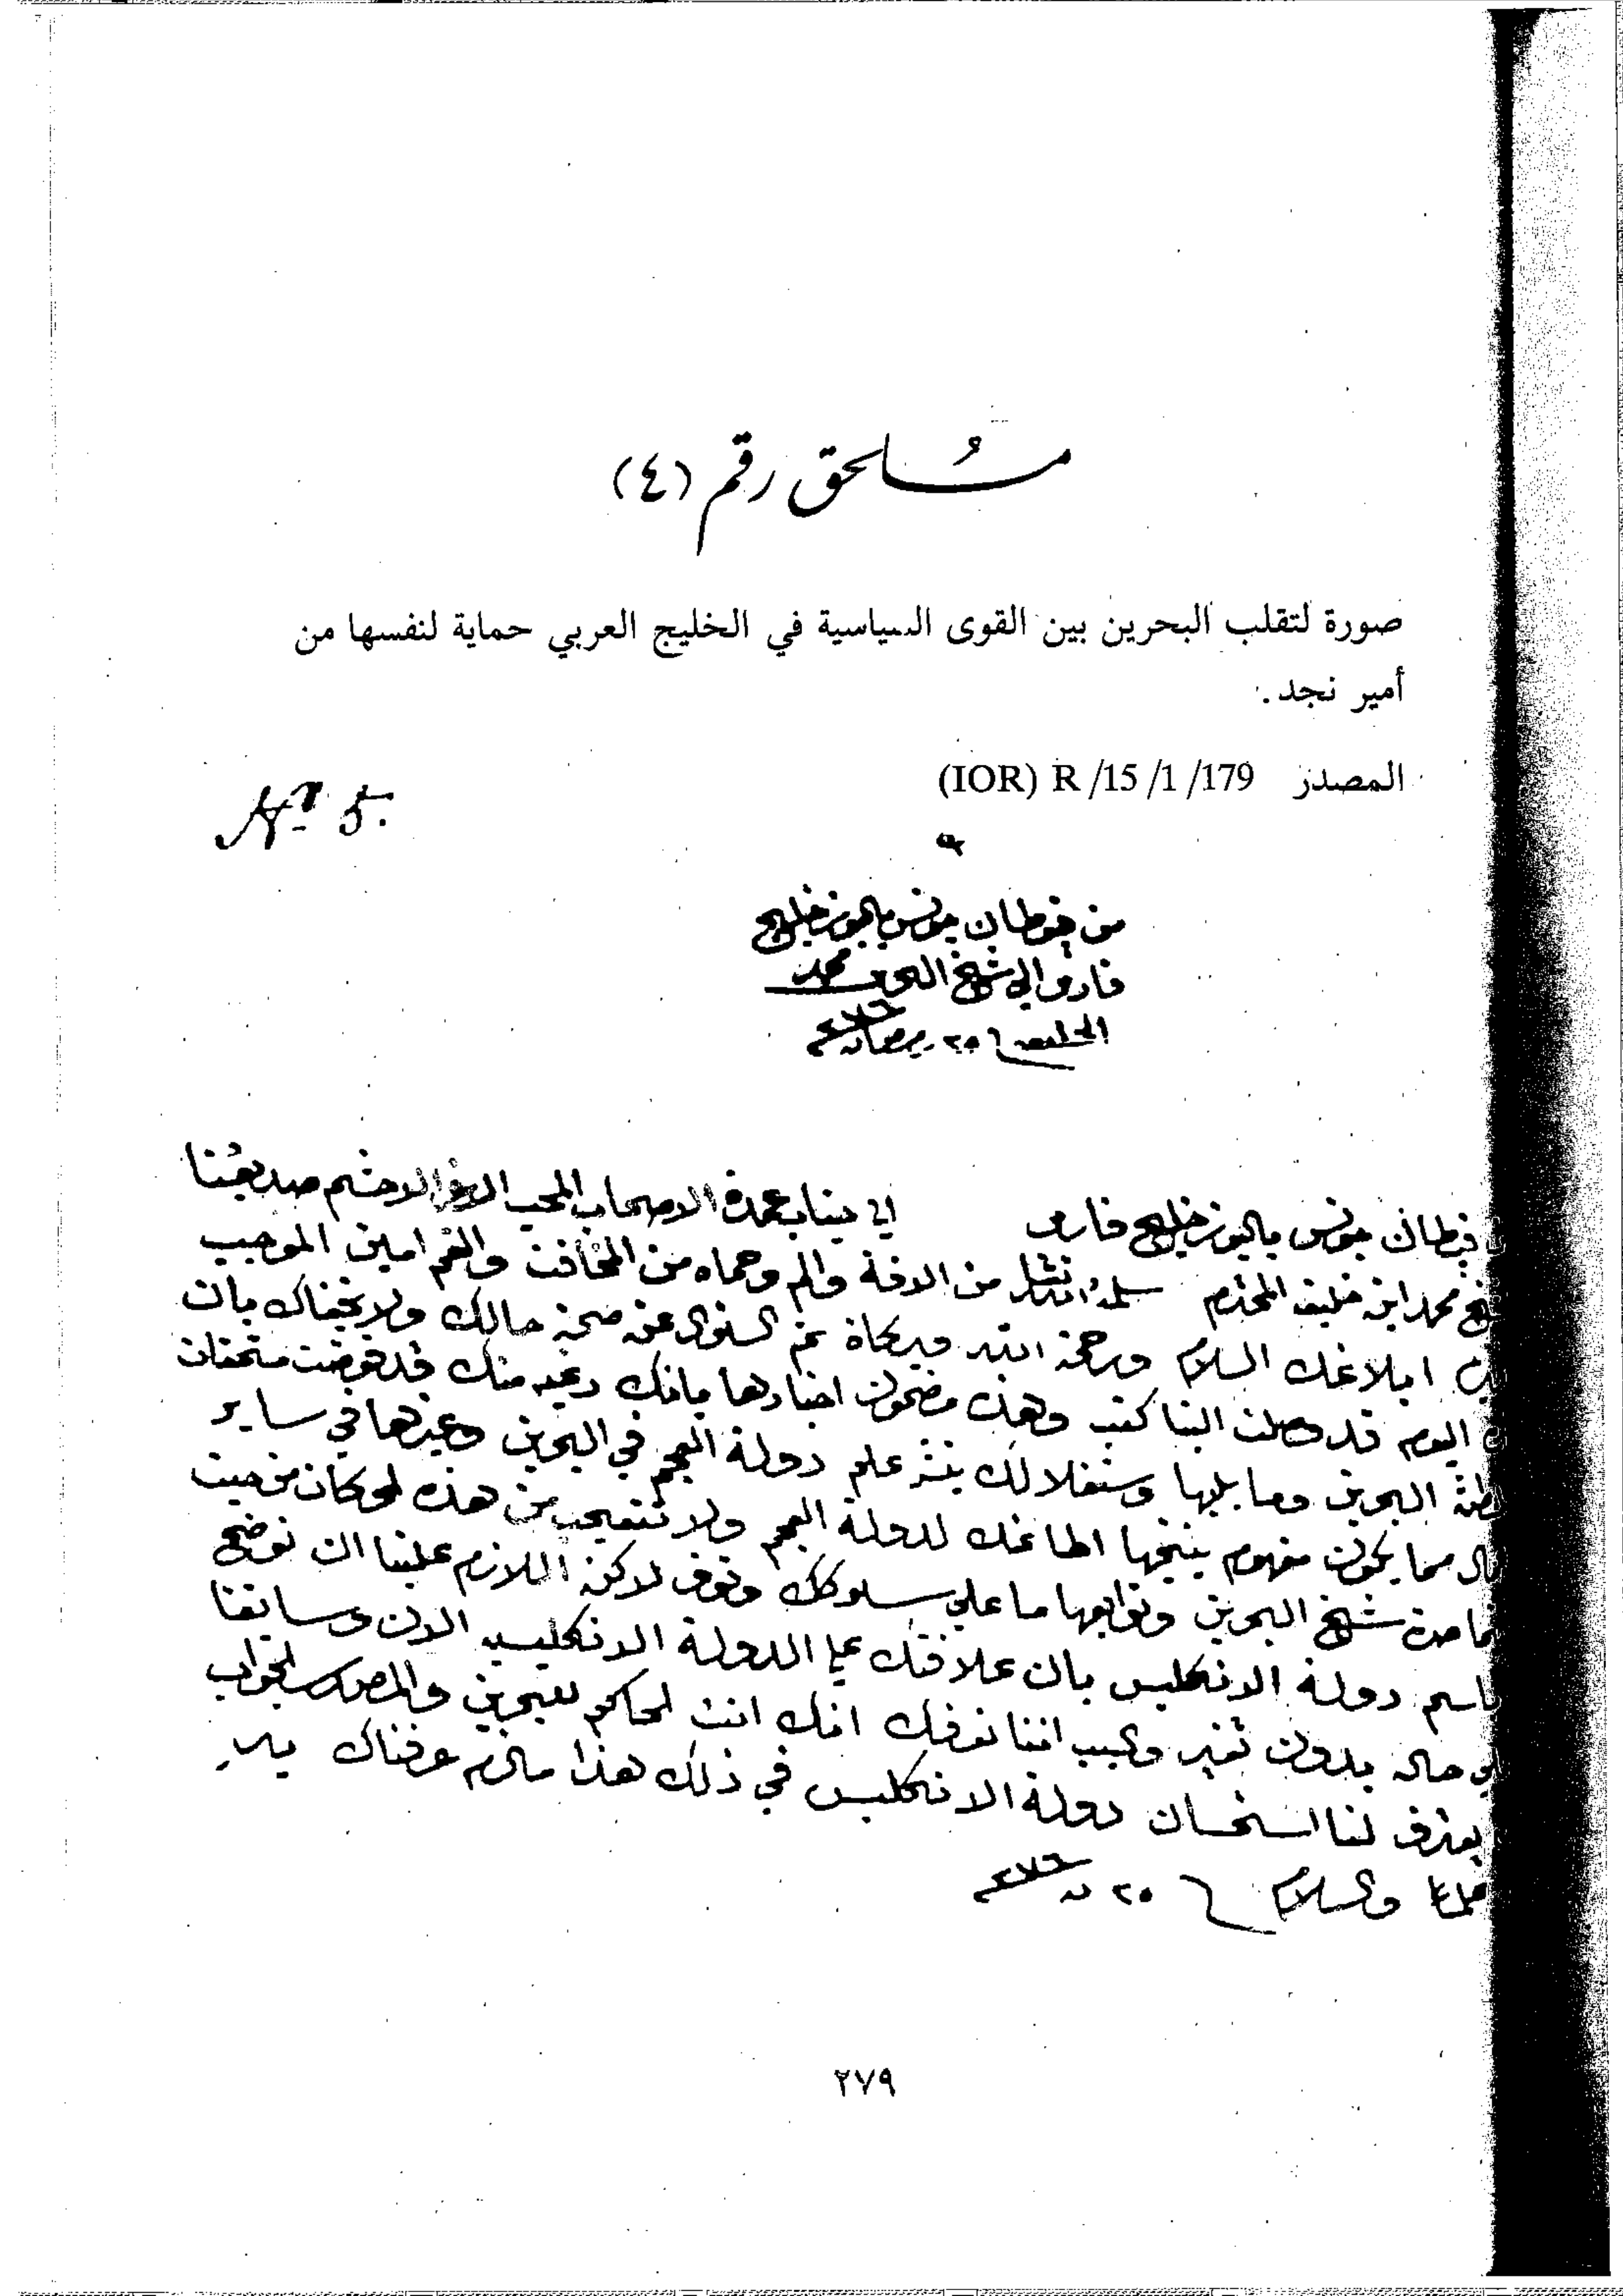 مُلحق رقم (٤)
صورة لتقلب البحرين بين القوى السياسية في الخليج العربي حماية لنفسها من
أمير نجد.
المصدر (IOR) R/15/1/179
No 5.
من قبطان جونس باليوز خليج
فارس الى شيخ البحرين محمد
الخليفه ٢٥ رمضان
قبطان جونس باليوز خليج فارس الى جناب عمدة الاصحاب المحب الاحشم صديقنا
محمد ابن خليفه المحترم سلمه الله من الافة والم وحماه من المخافت والغم امين الموجب
ابلاغك السلام ورحمة الله وبركاة ثم السئوال عن صحة حالك ولا يخفاك بان
اليوم قد وصلت الينا كتب وهذه مضمون اخبارها بانك رعيه منك قد فوضت متحققات
البحرين وما يليها وستقلالك بنشر علم دولة العجم في البحرين وغيرها في ساير
مما يكون مفهوم ينتجها اطاعتك لدولة العجم ولا نتعجب من هذه لو كان من حيث
شيخ البحرين وتوابعها ما على سلوكك لاكن اللازم علينا ان نوضح
باسم دولة الانكليس بان علاقتك على الدولة الانكليسيه الان وسابقا
حاله بدون تغير ونحب اننا نعرفك انك انت الحاكم للبحرين الجواب
يعترف لنا استحسان دولة الانكليس في ذلك هذا مالزم عرفناك
والسلام ٢٥
٢٧٩